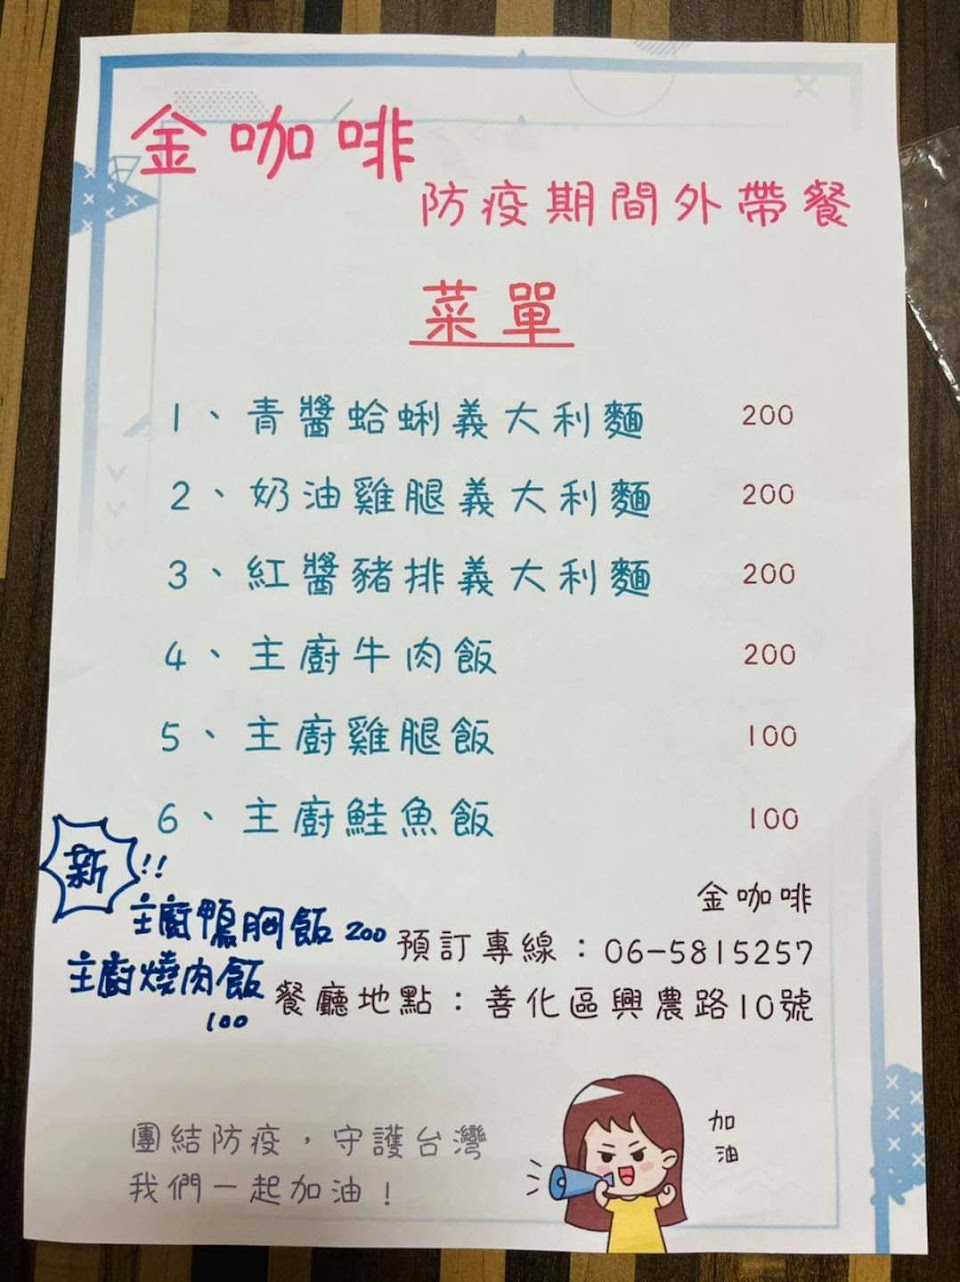 金咖啡
防疫期間外帶餐
菜單
1、青醬蛤蜊義大利麵 200
2、奶油雞腿義大利麵 200
3、紅醬豬排義大利麵 200
4、主廚牛肉飯 200
5、主廚雞腿飯 100
6、主廚鮭魚飯 100
新!!
主廚鴨胸飯 200
主廚燒肉飯
100
金咖啡
預訂專線：06-5815257
餐廳地點：善化區興農路10號
團結防疫，守護台灣
我們一起加油！
加
油